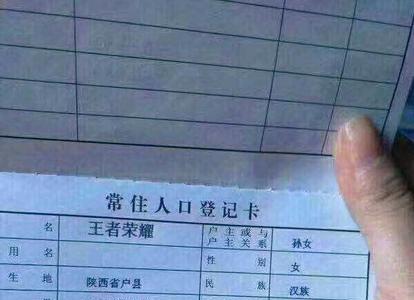 常住人口登记卡
名 王者荣耀 户主或与户主关系 孙女
用名 性别 女
生地 陕西省户县 民族 汉族